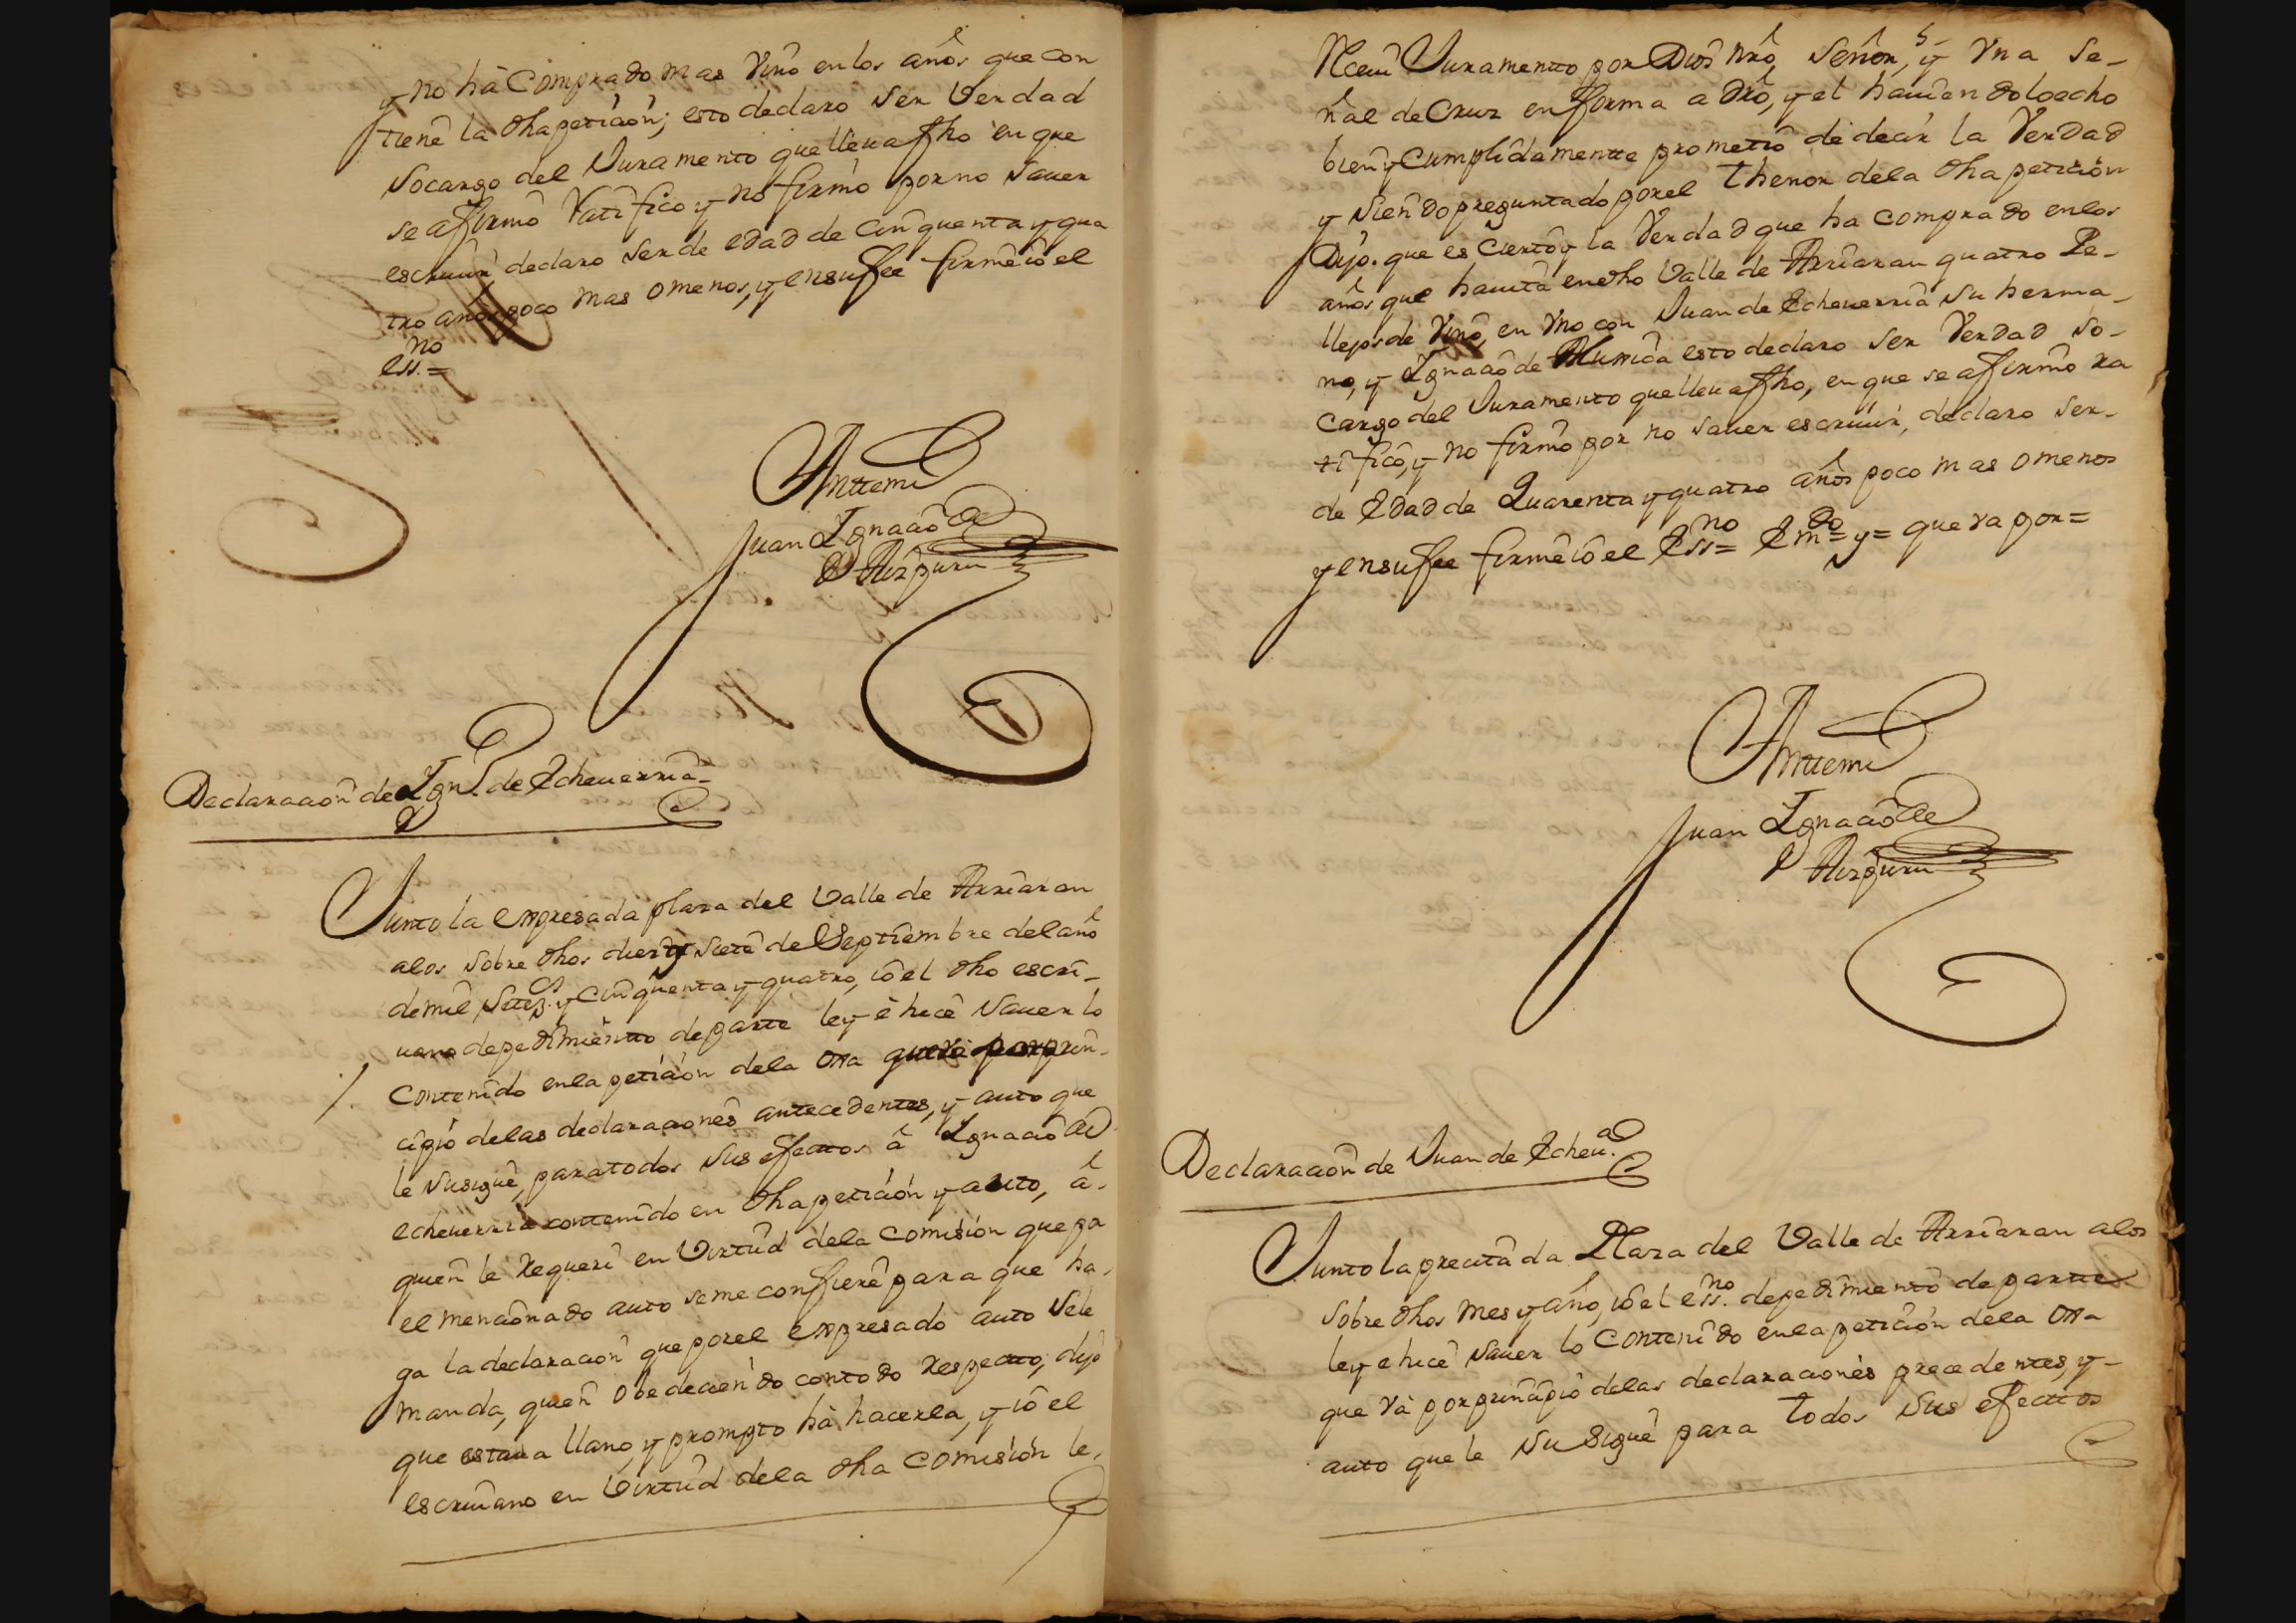 y no hà Comprado mas Vino en los años que con
tiene la dha peticion; esto declaro ser Verdad
so cargo del Juramento que lleua fho en que
se afirmò Ratifico y no firmò por no sauer
escriuir, declaro ser de edad de cinquenta y qua
tro años poco mas o menos, y en su fee firmè io el
essno.=
Anttemi
Juan Ignacio de
Aizpuru
Declaracion de Ign.o de Echeuerria
Junto la expresada plaza del Valle de Arriaran
a los sobre dhos diez y siete de Septiembre del año
de mil setez.s y cinquenta y quatro, io el dho escri-
uano de pedimiento de parte ley è hice sauer lo
contenido en la peticion de la ora que và por prin-
cipio de las declaraciones antecedentes, y auto que
le susigue, para todos sus efectos à Ignacio de
echeuerria contenido en dha peticion y auto, à
quien le requeri en Virtud de la Comision que pr
el mencionado auto se me confiere para que ha-
ga la declaracion que por el expresado auto sele
manda, quien obedeciendo con todo respecto, dijo
que estaua llano y prompto hà hacerla, y io el
escriuano en Virtud de la dha Comision le
5
Receuì Juramento por Dios nrô Señor, y Vna Se-
ñal de Cruz en forma a drô, y el hauiendolo echo
bien y Cumplidamente prometiò de decir la Verdad
y siendo preguntado por el thenor de la dha peticion
Dijo. que es Cierto y la Verdad que ha comprado en los
años que hauita en dho Valle de Arriaran quatro Pe-
llejos de Vino, en Vno con Juan de Echeuerria su herma-
no, y Ignacio de Murua esto declaro ser Verdad so-
cargo del Juramento que lleua fho, en que se afirmò ra
tificò, y no firmò por no sauer escriuir, declaro ser
de Edad de Quarenta y quatro años poco mas o menos
y en su fee firmè io el Essno= Emdo= y= que va por=
Anttemi
Juan Ignacio de
Aizpuru
Declaracion de Juan de Echeu.a
Junto la precitada Plaza del Valle de Arriaran a los
sobre dhos mes y año, io el essno. de pedimiento de parte
ley e hice sauer lo Contenido en la peticion de la ora
que và por principio de las declaraciones precedentes, y
auto que le su sigue para todos sus efectos